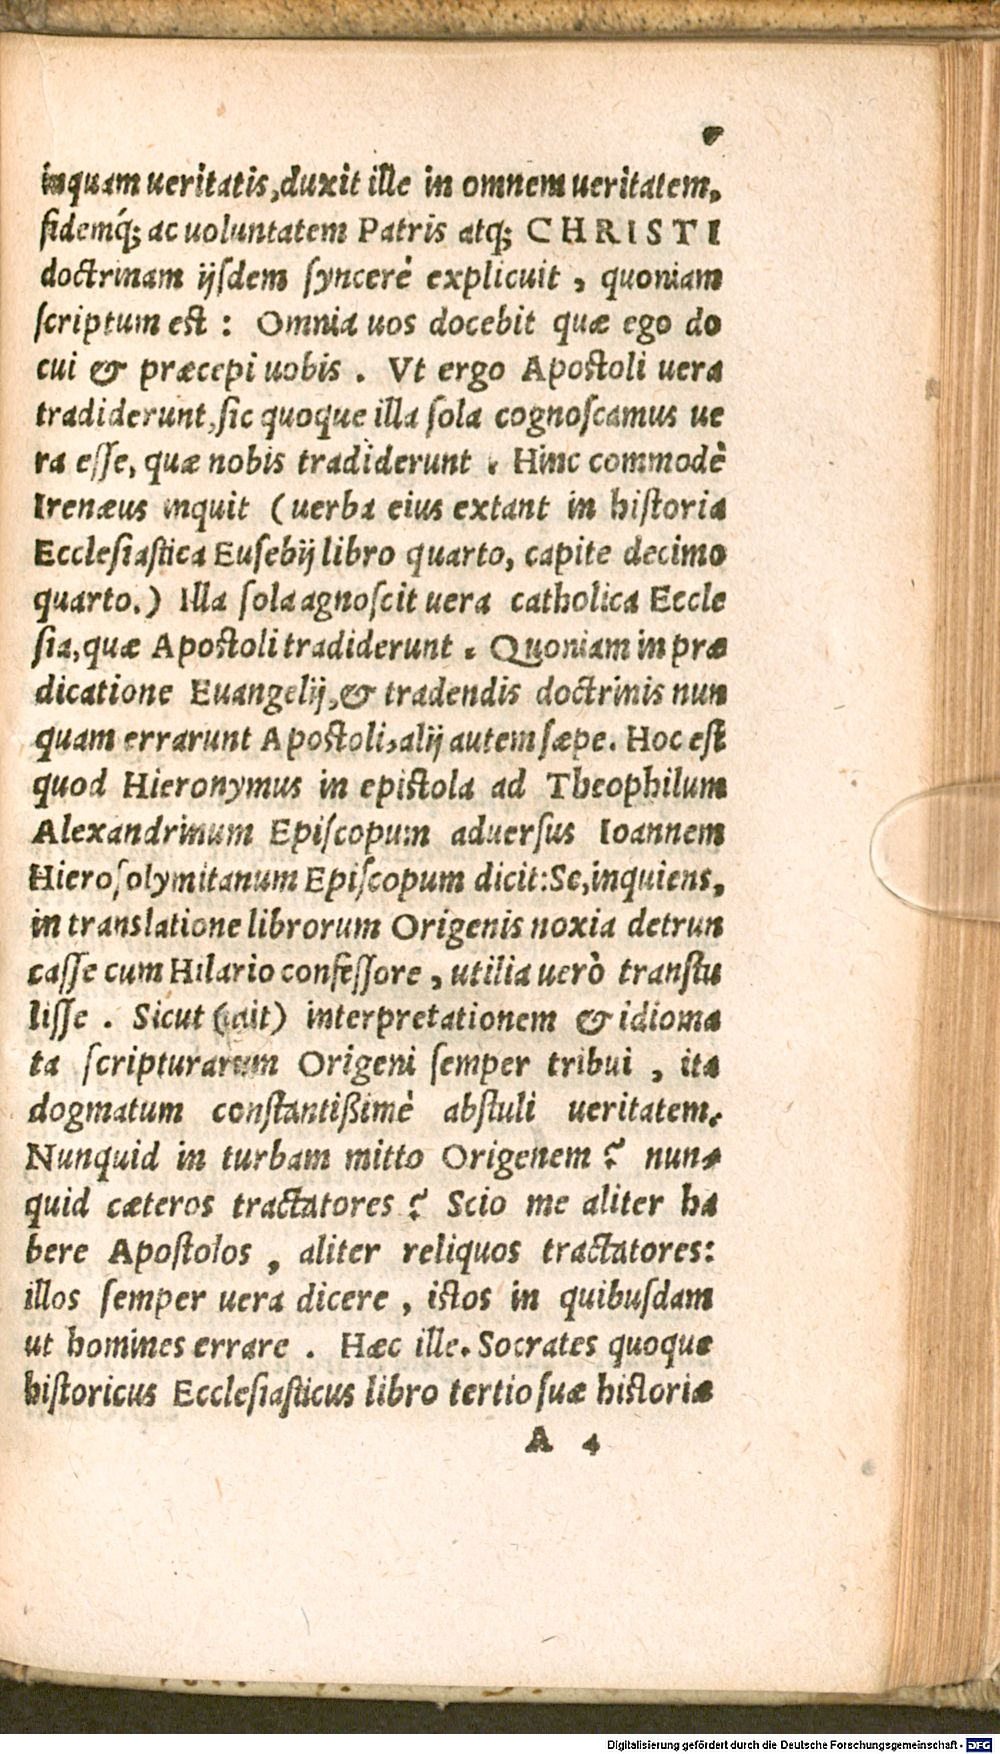 inquam ueritatis, duxit ille in omnem ueritatem,
fidemq́; ac uoluntatem Patris atq; CHRISTI
doctrinam ijſdem ſyncerè explicuit, quoniam
ſcriptum eſt: Omnia uos docebit quæ ego do
cui & præcepi uobis. Vt ergo Apoſtoli uera
tradiderunt, ſic quoque illa ſola cognoſcamus ue
ra eſſe, quæ nobis tradiderunt. Hinc commodè
Irenæus inquit (uerba eius extant in hiſtoria
Eccleſiaſtica Euſebij libro quarto, capite decimo
quarto.) Illa ſola agnoſcit uera catholica Eccle
ſia, quæ Apoſtoli tradiderunt. Quoniam in præ
dicatione Euangelij, & tradendis doctrinis nun
quam errarunt Apoſtoli, alij autem ſæpe. Hoc eſt
quod Hieronymus in epiſtola ad Theophilum
Alexandrinum Epiſcopum aduerſus Ioannem
Hieroſolymitanum Epiſcopum dicit: Se, inquiens,
in translatione librorum Origenis noxia detrun
caſſe cum Hilario confeſſore, utilia uerò tranſtu
liſſe. Sicut (ait) interpretationem & idioma
ta ſcripturarum Origeni ſemper tribui, ita
dogmatum conſtantißimè abſtuli ueritatem.
Nunquid in turbam mitto Origenem? nun-
quid cæteros tractatores? Scio me aliter ha
bere Apoſtolos, aliter reliquos tractatores:
illos ſemper uera dicere, iſtos in quibuſdam
ut homines errare. Hæc ille. Socrates quoque
hiſtoricus Eccleſiaſticus libro tertio ſuæ hiſtoriæ
A 4
Digitalisierung gefördert durch die Deutsche Forschungsgemeinschaft - DFG